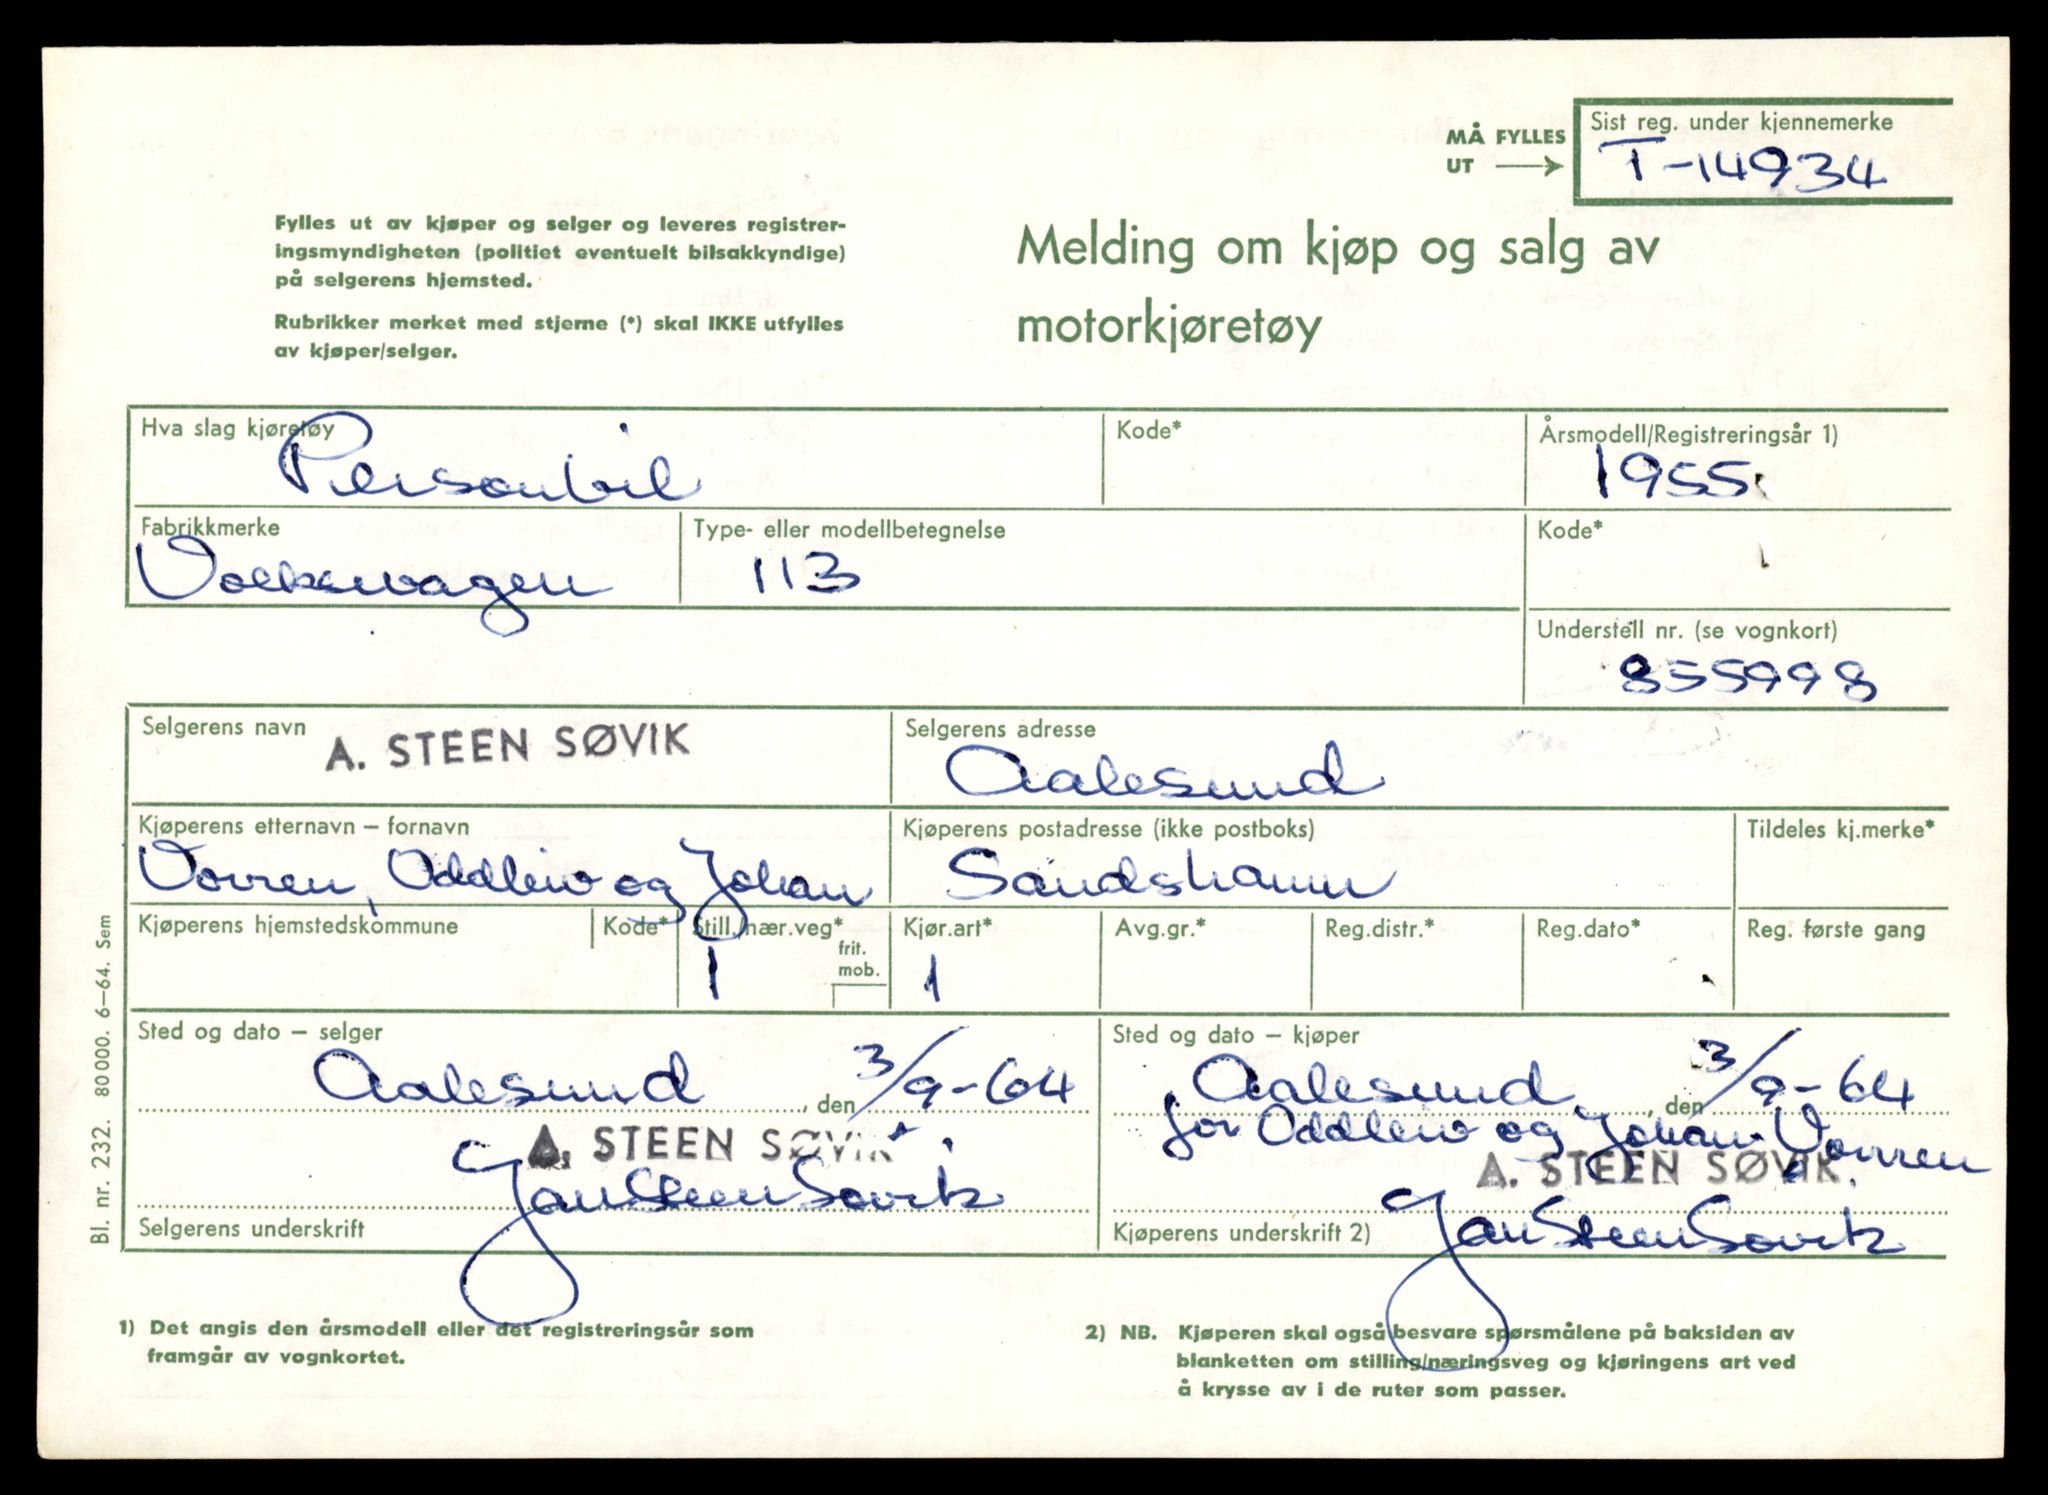 MÅ FYLLES UT →
Sist reg. under kjennemerke
T-14934
Fylles ut av kjøper og selger og leveres registrer-
ingsmyndigheten (politiet eventuelt bilsakkyndige)
på selgerens hjemsted.
Rubrikker merket med stjerne (*) skal IKKE utfylles
av kjøper/selger.
Melding om kjøp og salg av
motorkjøretøy
Hva slag kjøretøy
Personbil
Kode*
Årsmodell/Registreringsår 1)
1955
Fabrikkmerke
Volkswagen
Type- eller modellbetegnelse
113
Kode*
Understell nr. (se vognkort)
855998
Selgerens navn
A. STEEN SØVIK
Selgerens adresse
Aalesund
Kjøperens etternavn – fornavn
Vorren, Oddleiv og Johan
Kjøperens postadresse (ikke postboks)
Sandshamn
Tildeles kj.merke*
Kjøperens hjemstedskommune
Kode*
Still./nær.veg*
1
frit.
mob.
Kjør.art*
1
Avg.gr.*
Reg.distr.*
Reg.dato*
Reg. første gang
Sted og dato – selger
Aalesund, den 3/9-64
A. STEEN SØVIK
Jan Steen Søvik
Selgerens underskrift
Sted og dato – kjøper
Aalesund, den 3/9-64
for Oddleiv og Johan Vorren
A. STEEN SØVIK
Jan Steen Søvik
Kjøperens underskrift 2)
1) Det angis den årsmodell eller det registreringsår som
framgår av vognkortet.
2) NB. Kjøperen skal også besvare spørsmålene på baksiden av
blanketten om stilling/næringsveg og kjøringens art ved
å krysse av i de ruter som passer.
Bl. nr. 232. 80000. 6–64. Sem